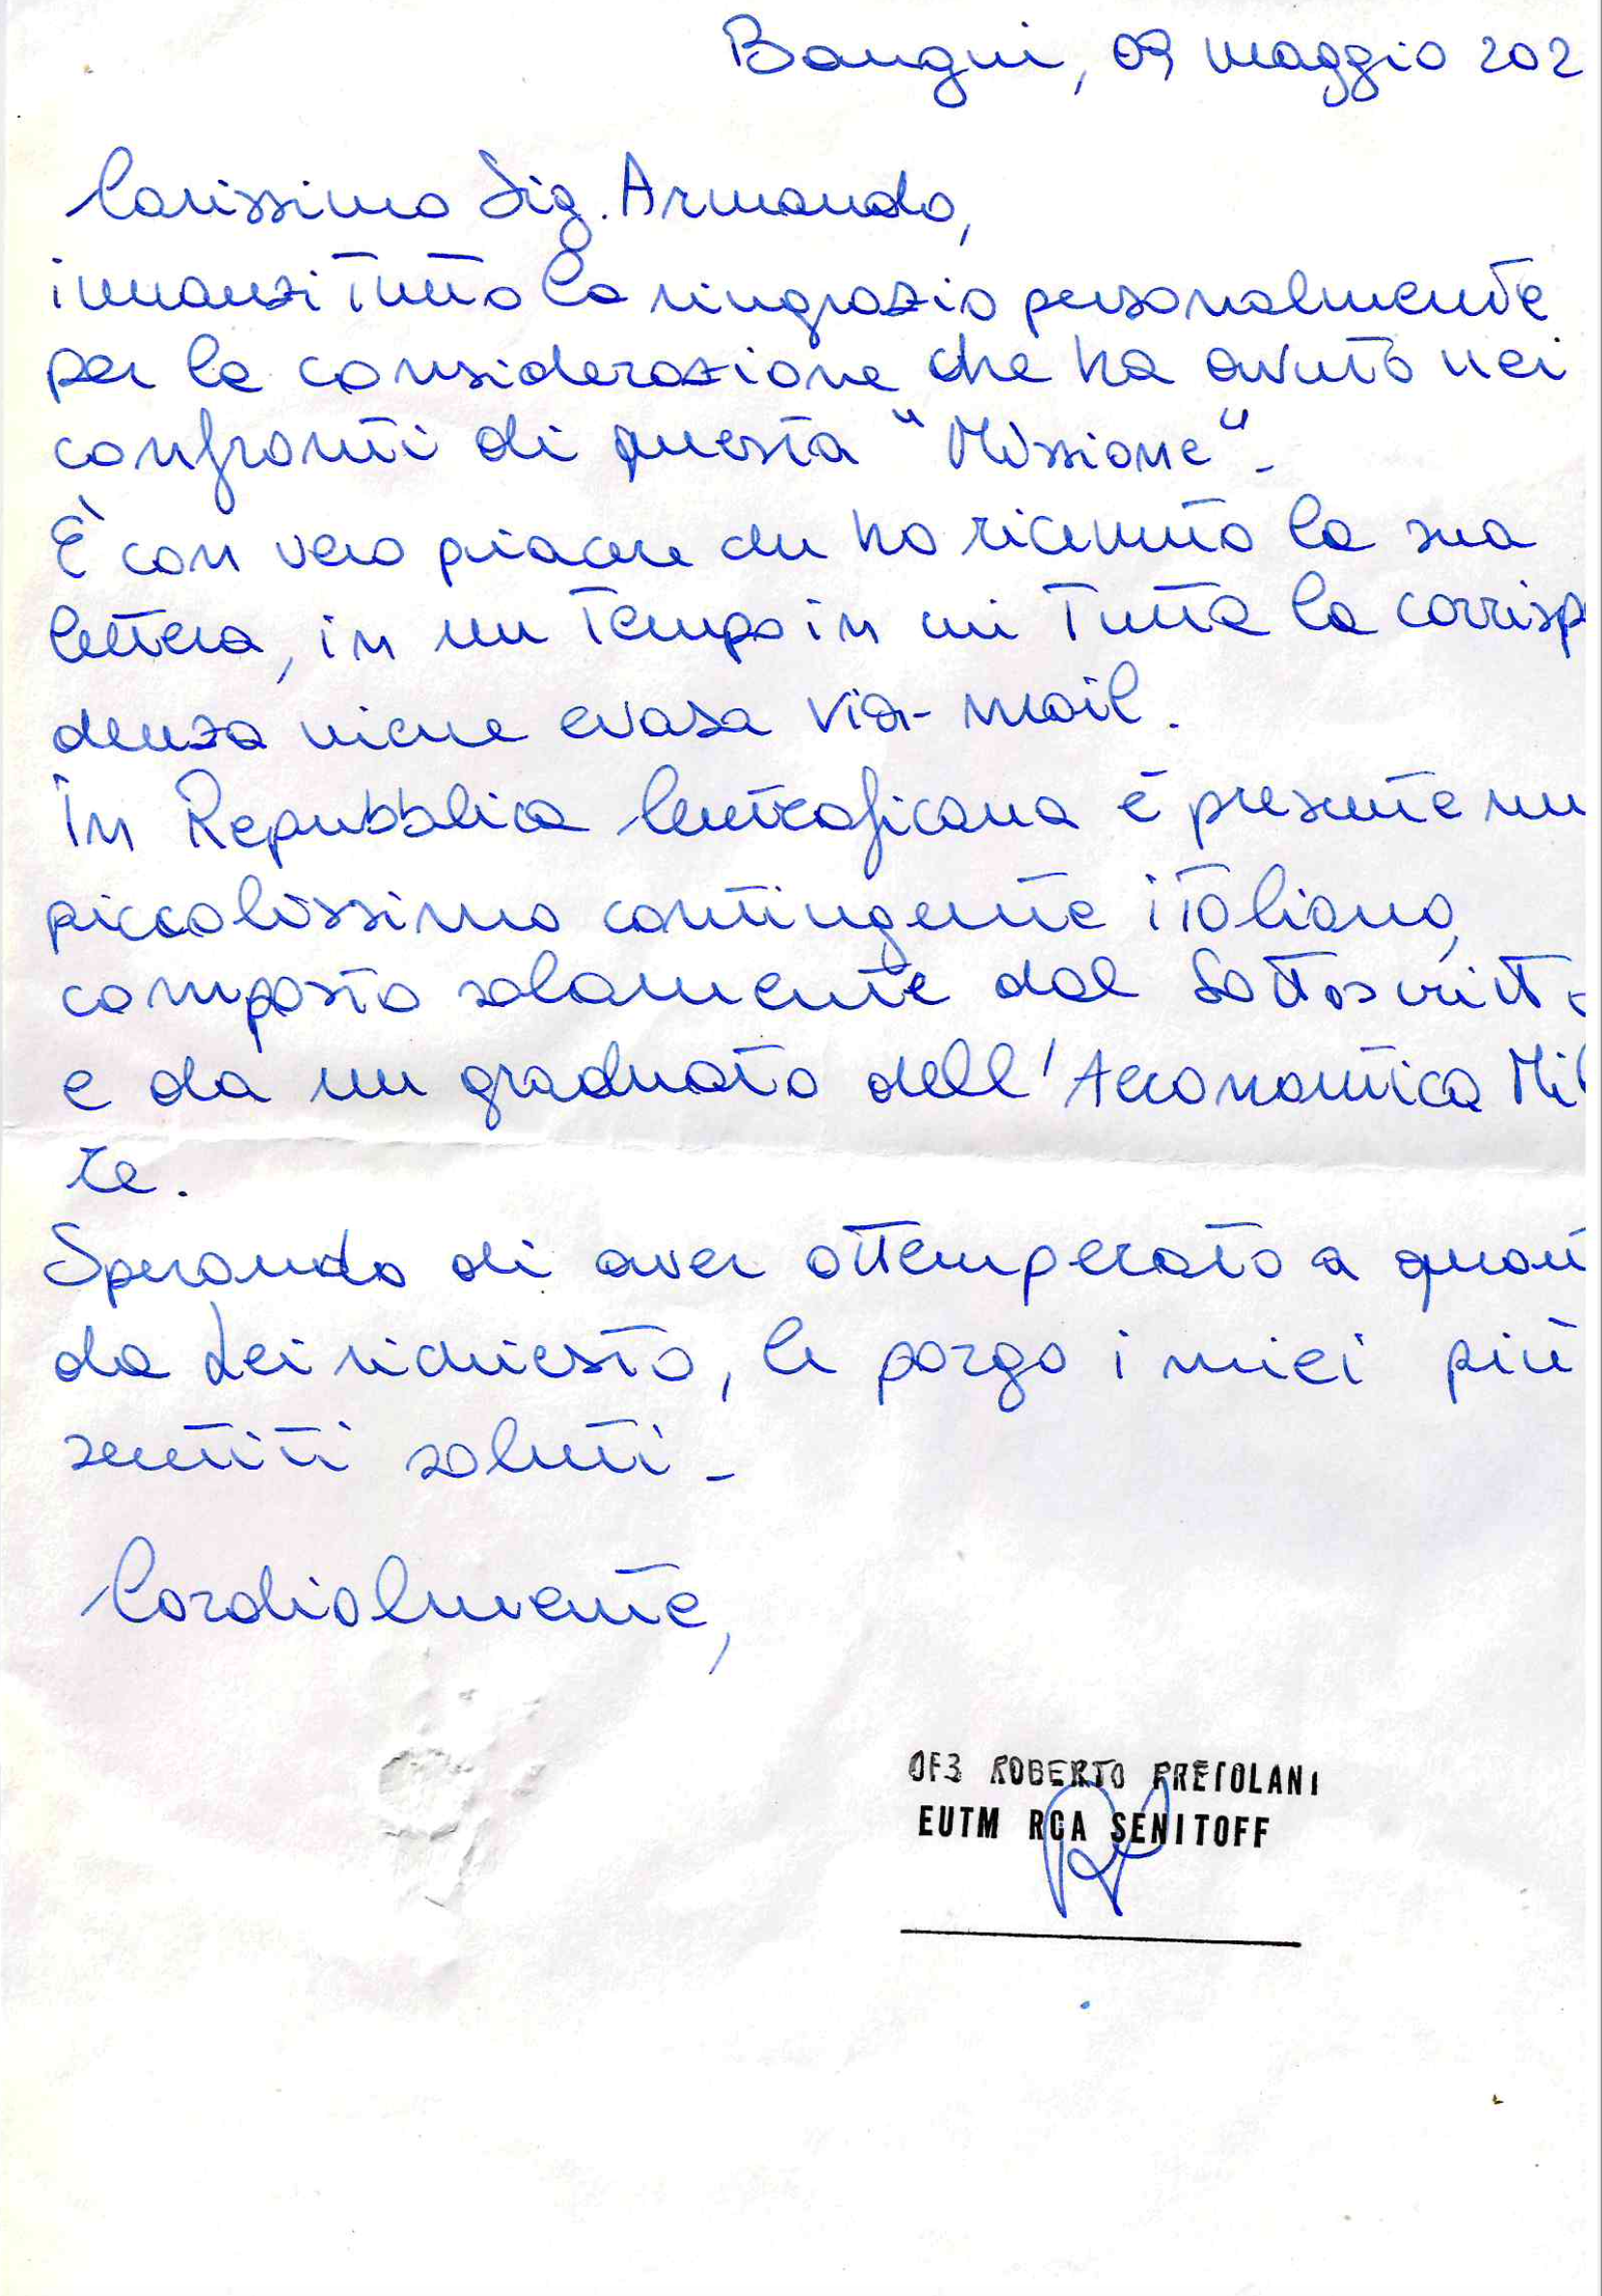 Bangui, 09 maggio 202
Carissimo Sig. Armando,
innanzi Tutto La ringrazio personalmente
per la considerazione che ha avuto nei
confronti di questa "Missione"-
È con vero piacere che ho ricevuto la sua
lettera, in un Tempo in cui Tutta la corrisp
denza viene evasa via-mail.
In Repubblica Centrafricana è presente un
piccolissimo contingente italiano,
composto solamente dal Sottoscritto
e da un graduato dell'Aeronautica Mil
re.
Sperando di aver ottemperato a quant
da Lei richiesto, le porgo i miei più
sentiti saluti-
Cordialmente,
OF3 ROBERTO PRETOLANI
EUTM RCA SENITOFF